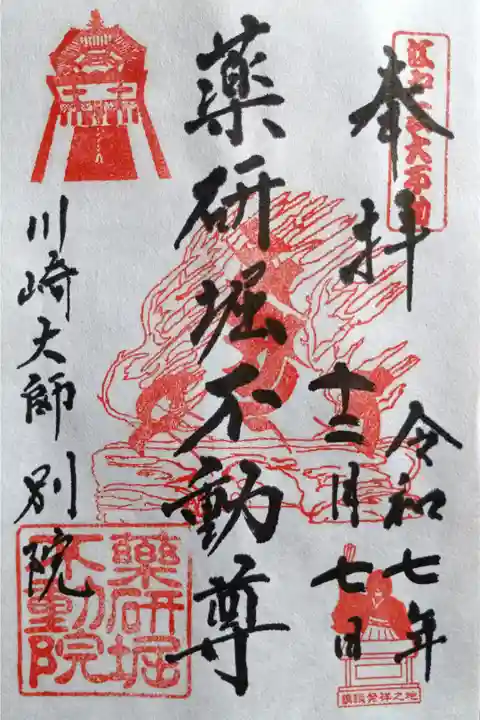 奉拝
江戸三大不動
令和七年
十二月七日
薬研堀不動尊
川崎大師別院
薬研堀
不動院
講談発祥之地